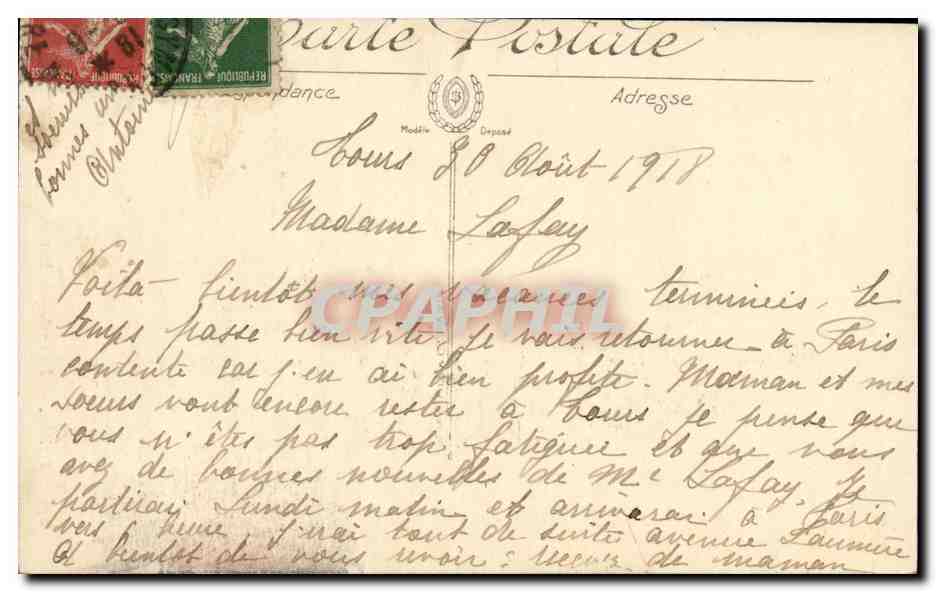 Carte Postale
Correspondance
Adresse
Modèle Déposé
REPUBLIQUE FRANÇAISE
Tours 30 Août 1918
Madame Lafay
Voilà bientôt mes vacances terminées, le
temps passe bien vite. Je vais retourner à Paris
contente car j'en ai bien profité. Maman et mes
soeurs vont encore rester à Tours je pense que
vous n'êtes pas trop fatiguée et que vous
avez de bonnes nouvelles de Mr Lafay. Je
partirai Lundi matin et arriverai à Paris
vers heure j'irai tout de suite avenue
A bientôt de vous revoir: de maman
et
soeurs
bonnes
Antoinette
CPAPHIL